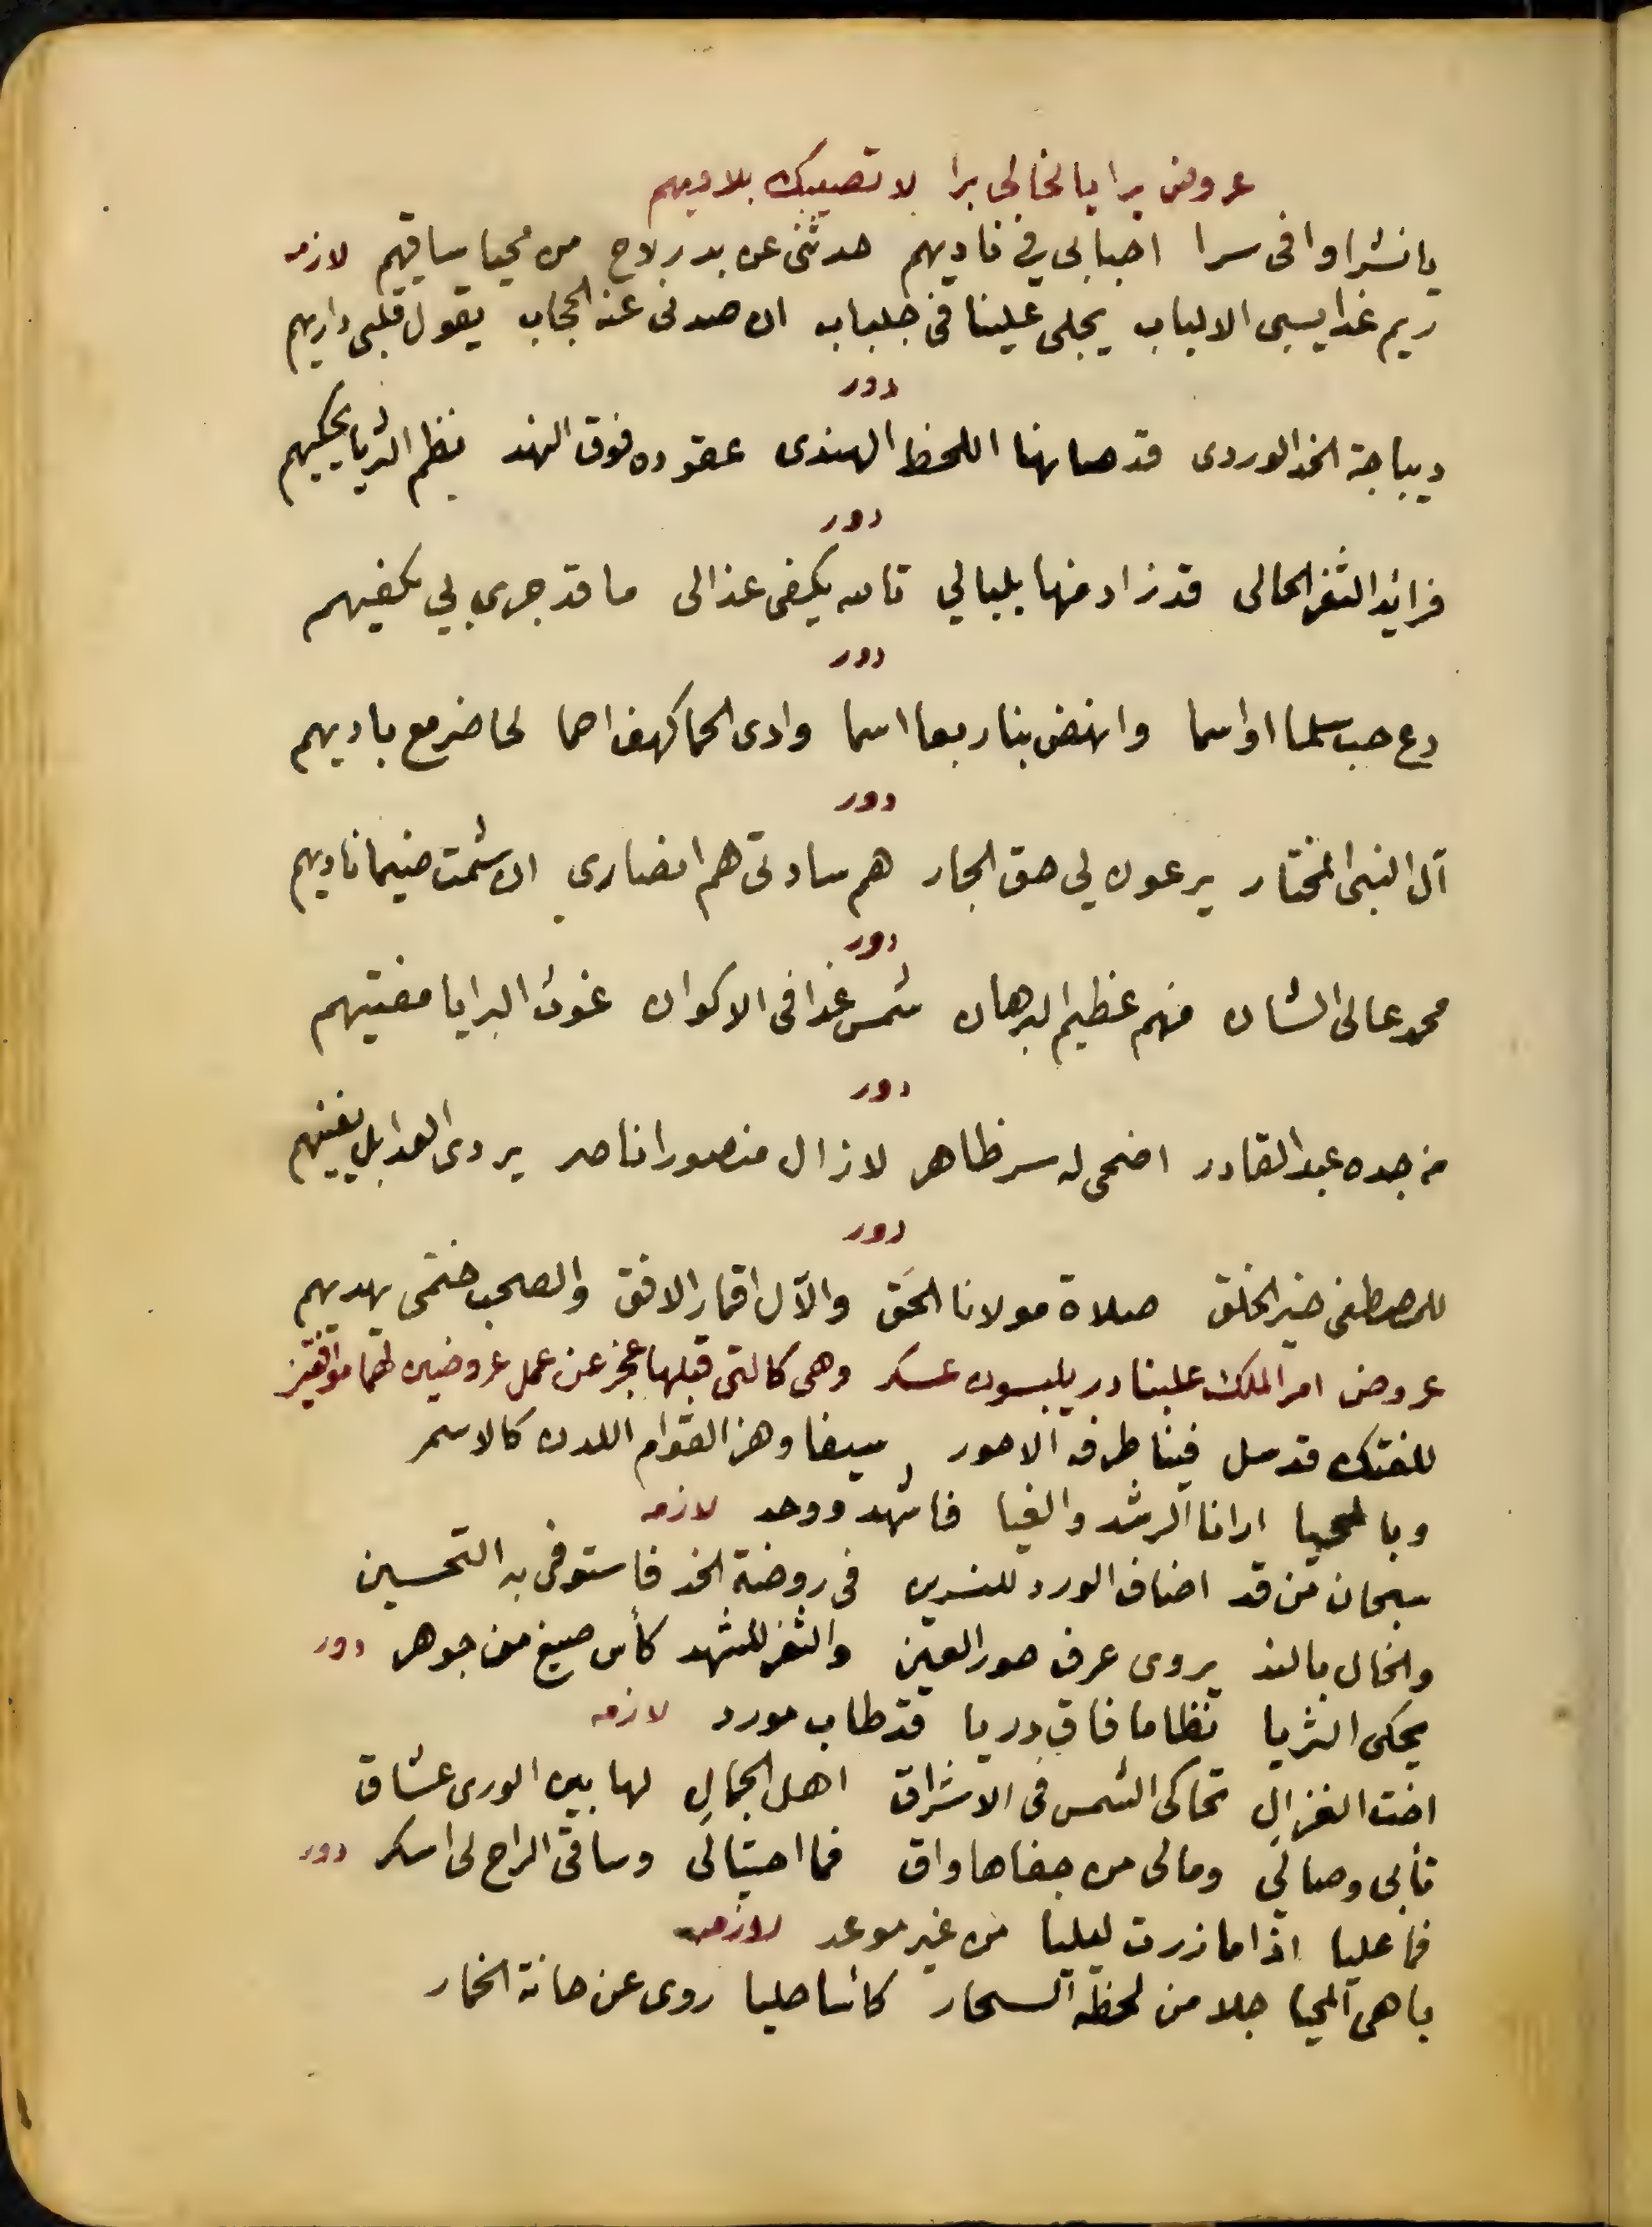 عروض برا يا لخالي برا لا تصيبك بلاويهم
يا نشرا وافى سرا احبابي في ناديهم حدثني عن بدر لاح من محيا ساقيهم لازمه
ريم غدا يسبي الالباب يجلى علينا في جلباب ان صدني عنه الحجاب يقول قلبي داريهم
دور
ديباجة الخد الوردى قد صانها اللحظ الهندى عقوده فوق النهد نظم الثريا يحكيهم
دور
فرايد الثغر الحالى قد زاد منها بلبالي تالله يكفى عذالى ما قد جرى بي يكفيهم
دور
دع حب سلما او اسما وانهض بنا ربعا اسما وادى الحما كهف احما لحاضر مع باديهم
دور
آل النبي المختار يرعون لي حق الجار هم سادتى هم انصارى ان شمت ضيما ناديهم
دور
محمد عالى الشان منهم عظيم البرهان شمس غدا فى الاكوان غوث البرايا مفتيهم
دور
من جده عبد القادر اضحى له سر ظاهر لا زال منصورا ناصر يردى العدا بل يفنيهم
دور
للمصطفى خير الخلق صلاة مولانا الحق والآل اقمار الافق والصحب ختمى يهديهم
عروض امر الملك علينا در يلبسون عسكر وهى كالتى قبلها عجز عن عمل عروضين لهما موافقين
للفتك قد سل فينا طرف الاحور سيفا وهز القوام اللدن كالاسمر
وبالمحيا ارانا الرشد والغيا فاشهد ووحد لازمه
سبحان من قد اضاف الورد للنسرين فى روضة الخد فاستوفى به التحسين
والخال بالند يروى عرف حور العين والثغر للشهد كأس صيغ من جوهر دور
يحكى الثريا نظاما فاق دريا قد طاب مورد لازمه
اخت الغزال تحاكى الشمس فى الاشراق اهل الجمال لها بين الورى عشاق
تأبى وصالي ومالى من جفاها واق فما احتيالى وساقى الراح لى اسكر دور
فما عليا اذا ما زرت ليليا من غير موعد لازمه
باهى المحيا جلا من لحظه السحار كأسا حليا روى عن حانة الخمار